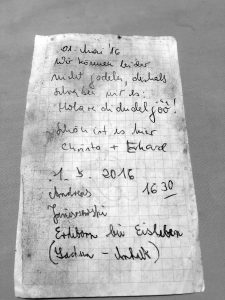 01. Mai '16
Wir können leider
nicht jodeln, deshalb
schreiben wir es:
Holare di dudel jöö!
Schön ist es hier
Christa + Erhard
1. 5. 2016
Andreas 16 30
Erdeborn bei Eisleben
(Sachsen - Anhalt)